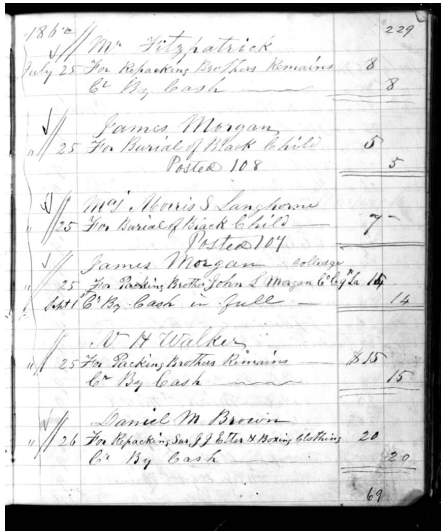 229
186
Mr Fitzpatrick
July 25 For Repacking Brothers Remains 8
Cr By Cash 8
James Morgan
" 25 For Burial of Black Child 5
Posted 108 5
Maj Morris S Langhorne
" 25 For Burial of Black Child 7
Posted 107
James Morgan
" 25 For Packing Brother John L Morgan Co C 9th La
Sept 1st Cr By Cash in full 14
N H Walker
" 25 For Packing Brothers Remains $15
Cr By Cash 15
Daniel M Brown
" 26 For Repacking J J & Boxing Clothing 20
Cr By Cash 20
69